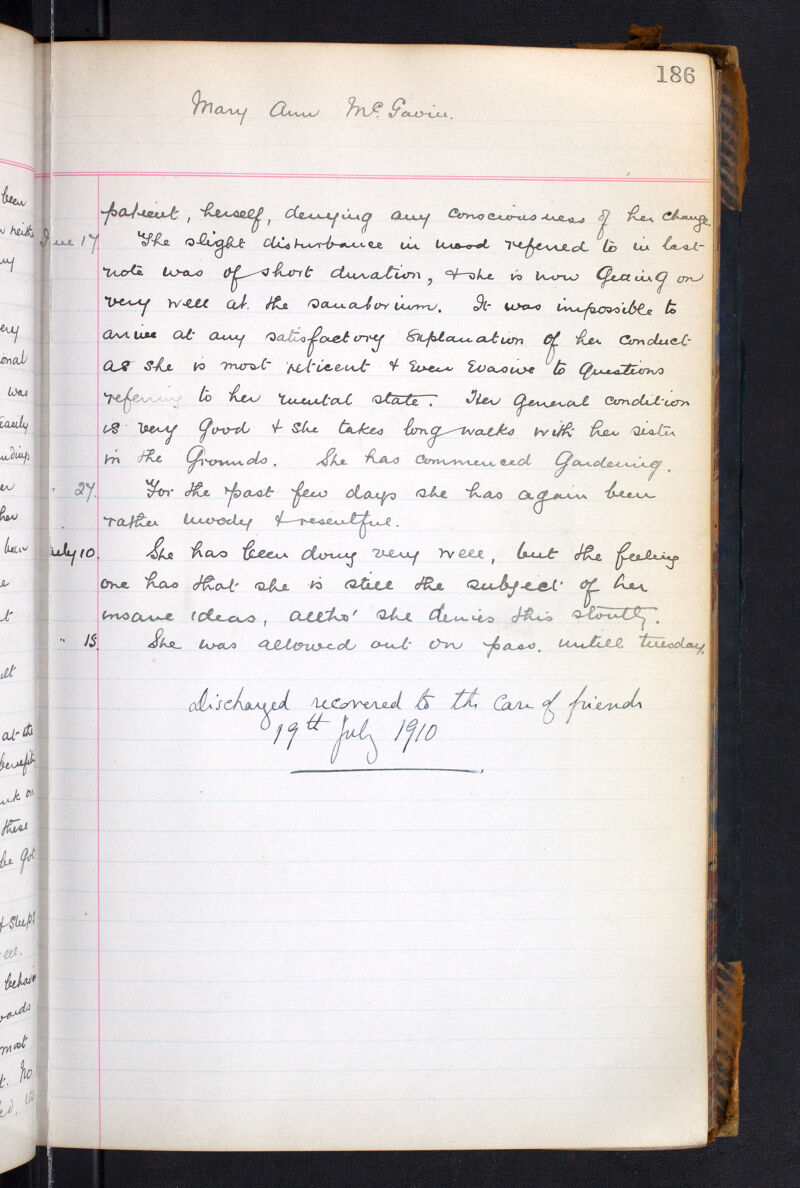 186
Mary Ann McGavin.
patient, herself, denying any consciousness of her change.
June 17 The slight disturbance in mood referred to in last
note was of short duration, & she is now Getting on
very well at the sanatorium. It was impossible to
arrive at any satisfactory Explanation of her conduct
as she is most reticent & Even Evasive to Questions
referring to her mental state. Her General condition
is very Good & she takes long walks with her sister
in the Grounds. She has commenced Gardening.
" 27. For the past few days she has again been
rather moody & resentful.
July 10. She has been doing very well, but the feeling
one has that she is still the subject of her
insane ideas, altho' she denies this stoutly.
" 15. She was allowed out on pass. untill tuesday.
Discharged recovered to the care of friends
19th July 1910